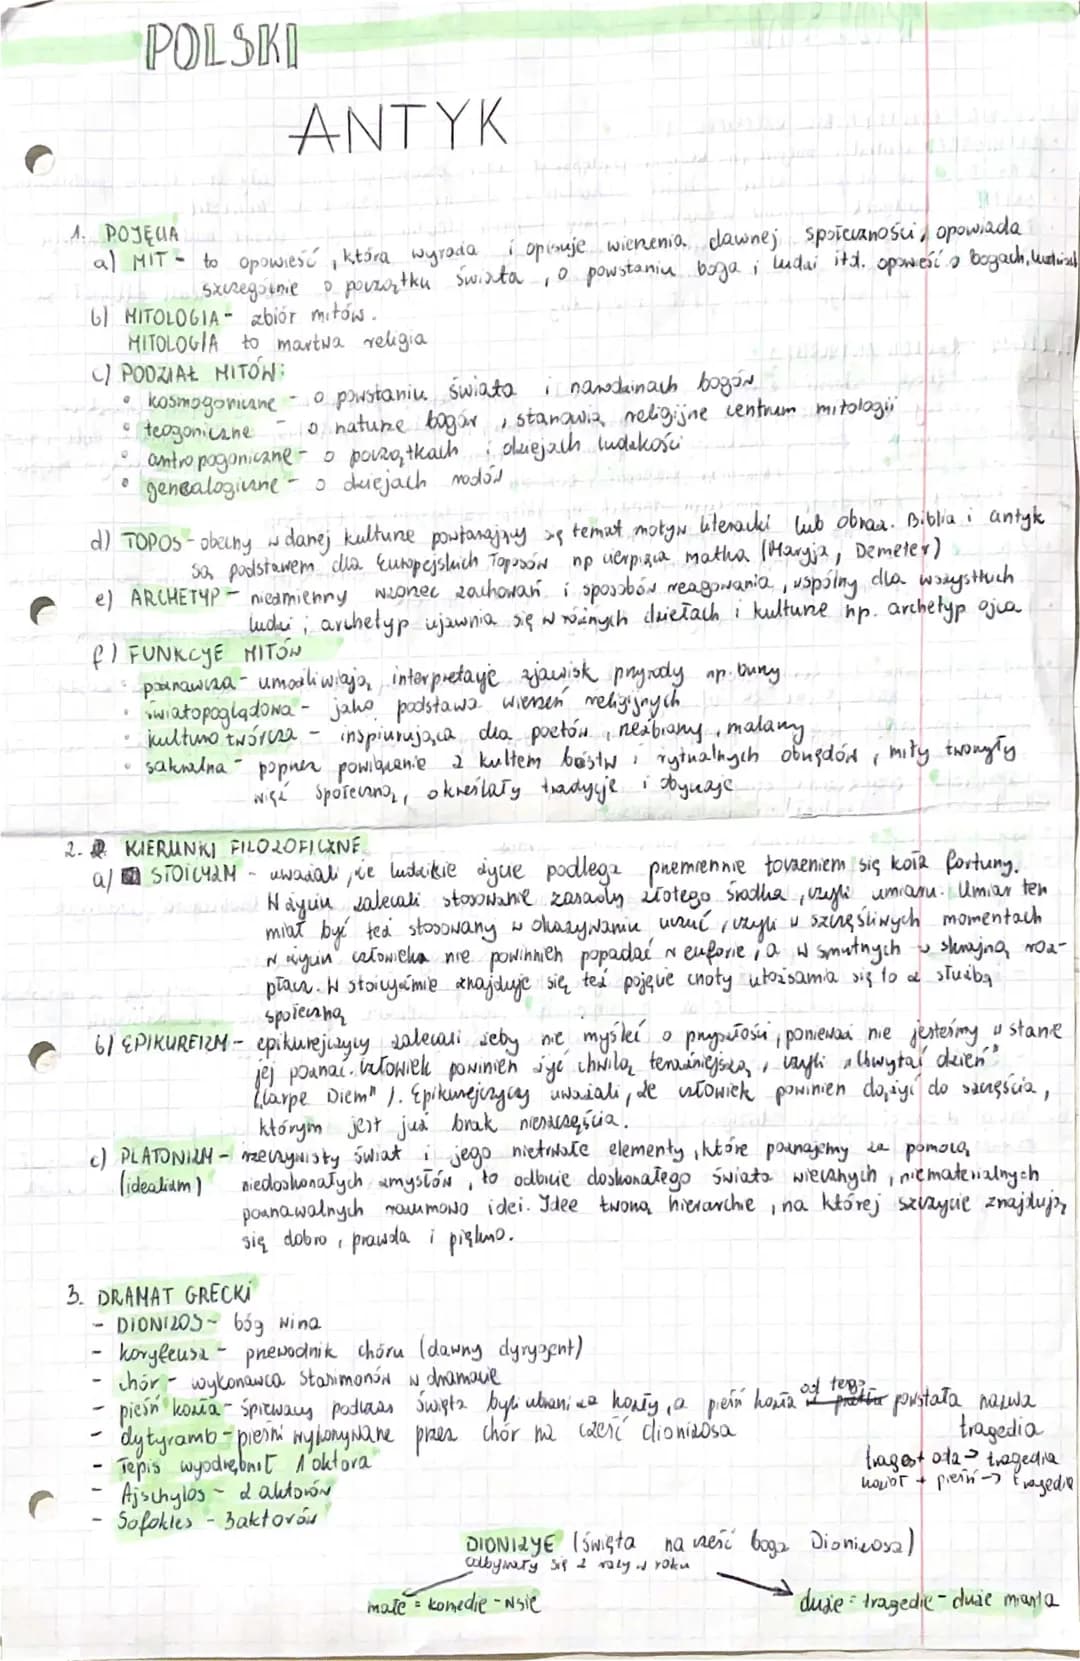 POLSKI
ANTYK
1. POJĘCIA
a) MIT - to opowieść, która wyraża i opisuje wierzenia dawnej społeczności, opowiada
szczególnie o początku świata, o powstaniu boga i ludzi itd. opowieść o bogach,
b) MITOLOGIA - zbiór mitów.
MITOLOGIA to martwa religia
c) PODZIAŁ MITÓW:
• kosmogoniczne - o powstaniu świata i narodzinach bogów
• teogoniczne - o naturze bogów, stanowią religijne centrum mitologii
• antropogoniczne - o początkach i dziejach ludzkości
• genealogiczne - o dziejach rodów
d) TOPOS - obecny w danej kulturze powtarzający się temat motyw literacki lub obraz. Biblia i antyk
są podstawem dla Europejskich Toposów np cierpiąca matka (Maryja, Demeter)
e) ARCHETYP - niezmienny wzorzec zachowań i sposobów reagowania, wspólny dla wszystkich
ludzi; archetyp ujawnia się w różnych dziełach i kulturze np. archetyp ojca
f) FUNKCJE MITÓW
• poznawcza - umożliwiają interpretację zjawisk przyrody np. burzy
• światopoglądowa - jako podstawa wierzeń religijnych
• kulturotwórcza - inspirująca dla poetów, rzeźbiarzy, malarzy
• sakralna - poprzez powiązanie z kultem bóstw i rytualnych obrzędów, mity tworzyły
więź społeczną, określały tradycje i obyczaje
2. KIERUNKI FILOZOFICZNE
a) STOICYZM - uważali, że ludzkie życie podlega przemiennie toczeniem się koła fortuny.
W życiu zalecali stosowanie zasady złotego środka, czyli umiaru. Umiar ten
miał być też stosowany w okazywaniu uczuć, czyli w szczęśliwych momentach
w życiu człowieka nie powinnien popadać w euforie, a w smutnych w skrajną roz-
pacz. W stoicyzmie znajduje się też pojęcie cnoty utożsamia się to z służbą
społeczną
b) EPIKUREIZM - epikurejczycy zalecali żeby nie myśleć o przyszłości, ponieważ nie jesteśmy w stanie
jej poznać. Człowiek powinien żyć chwilą teraźniejszą, czyli "Chwytaj dzień"
(Carpe Diem"). Epikurejczycy uważali, że człowiek powinien dążyć do szczęścia,
którym jest już brak nieszczęścia.
c) PLATONIZM - rzeczywisty świat i jego nietrwałe elementy, które poznajemy za pomocą
(idealizm) niedoskonałych zmysłów, to odbicie doskonałego świata wiecznych, niematerialnych
poznawalnych rozumowo idei. Idee tworzą hierarchie, na której szczycie znajdują
się dobro, prawda i piękno.
3. DRAMAT GRECKI
- DIONIZOS - bóg wina
- koryfeusz - przewodnik chóru (dawny dyrygent)
- chór - wykonawca Stasimonów w dramacie
- pieśń kozła - śpiewacy podczas święta byli ubrani za kozły, a pieśń kozła od tego powstała nazwa
tragedia
- dytyramb - pieśni wykonywane przez chór na cześć dionizosa
tragos + oda -> tragedia
kozioł + pieśń -> tragedia
- Tepis wyodrębnił 1 aktora
- Ajschylos - 2 aktorów
- Sofokles - 3 aktorów
DIONIZJE (święta na cześć boga Dionizosa)
odbywały się 2 razy w roku
małe = komedie - wsie
duże = tragedie - duże miasta